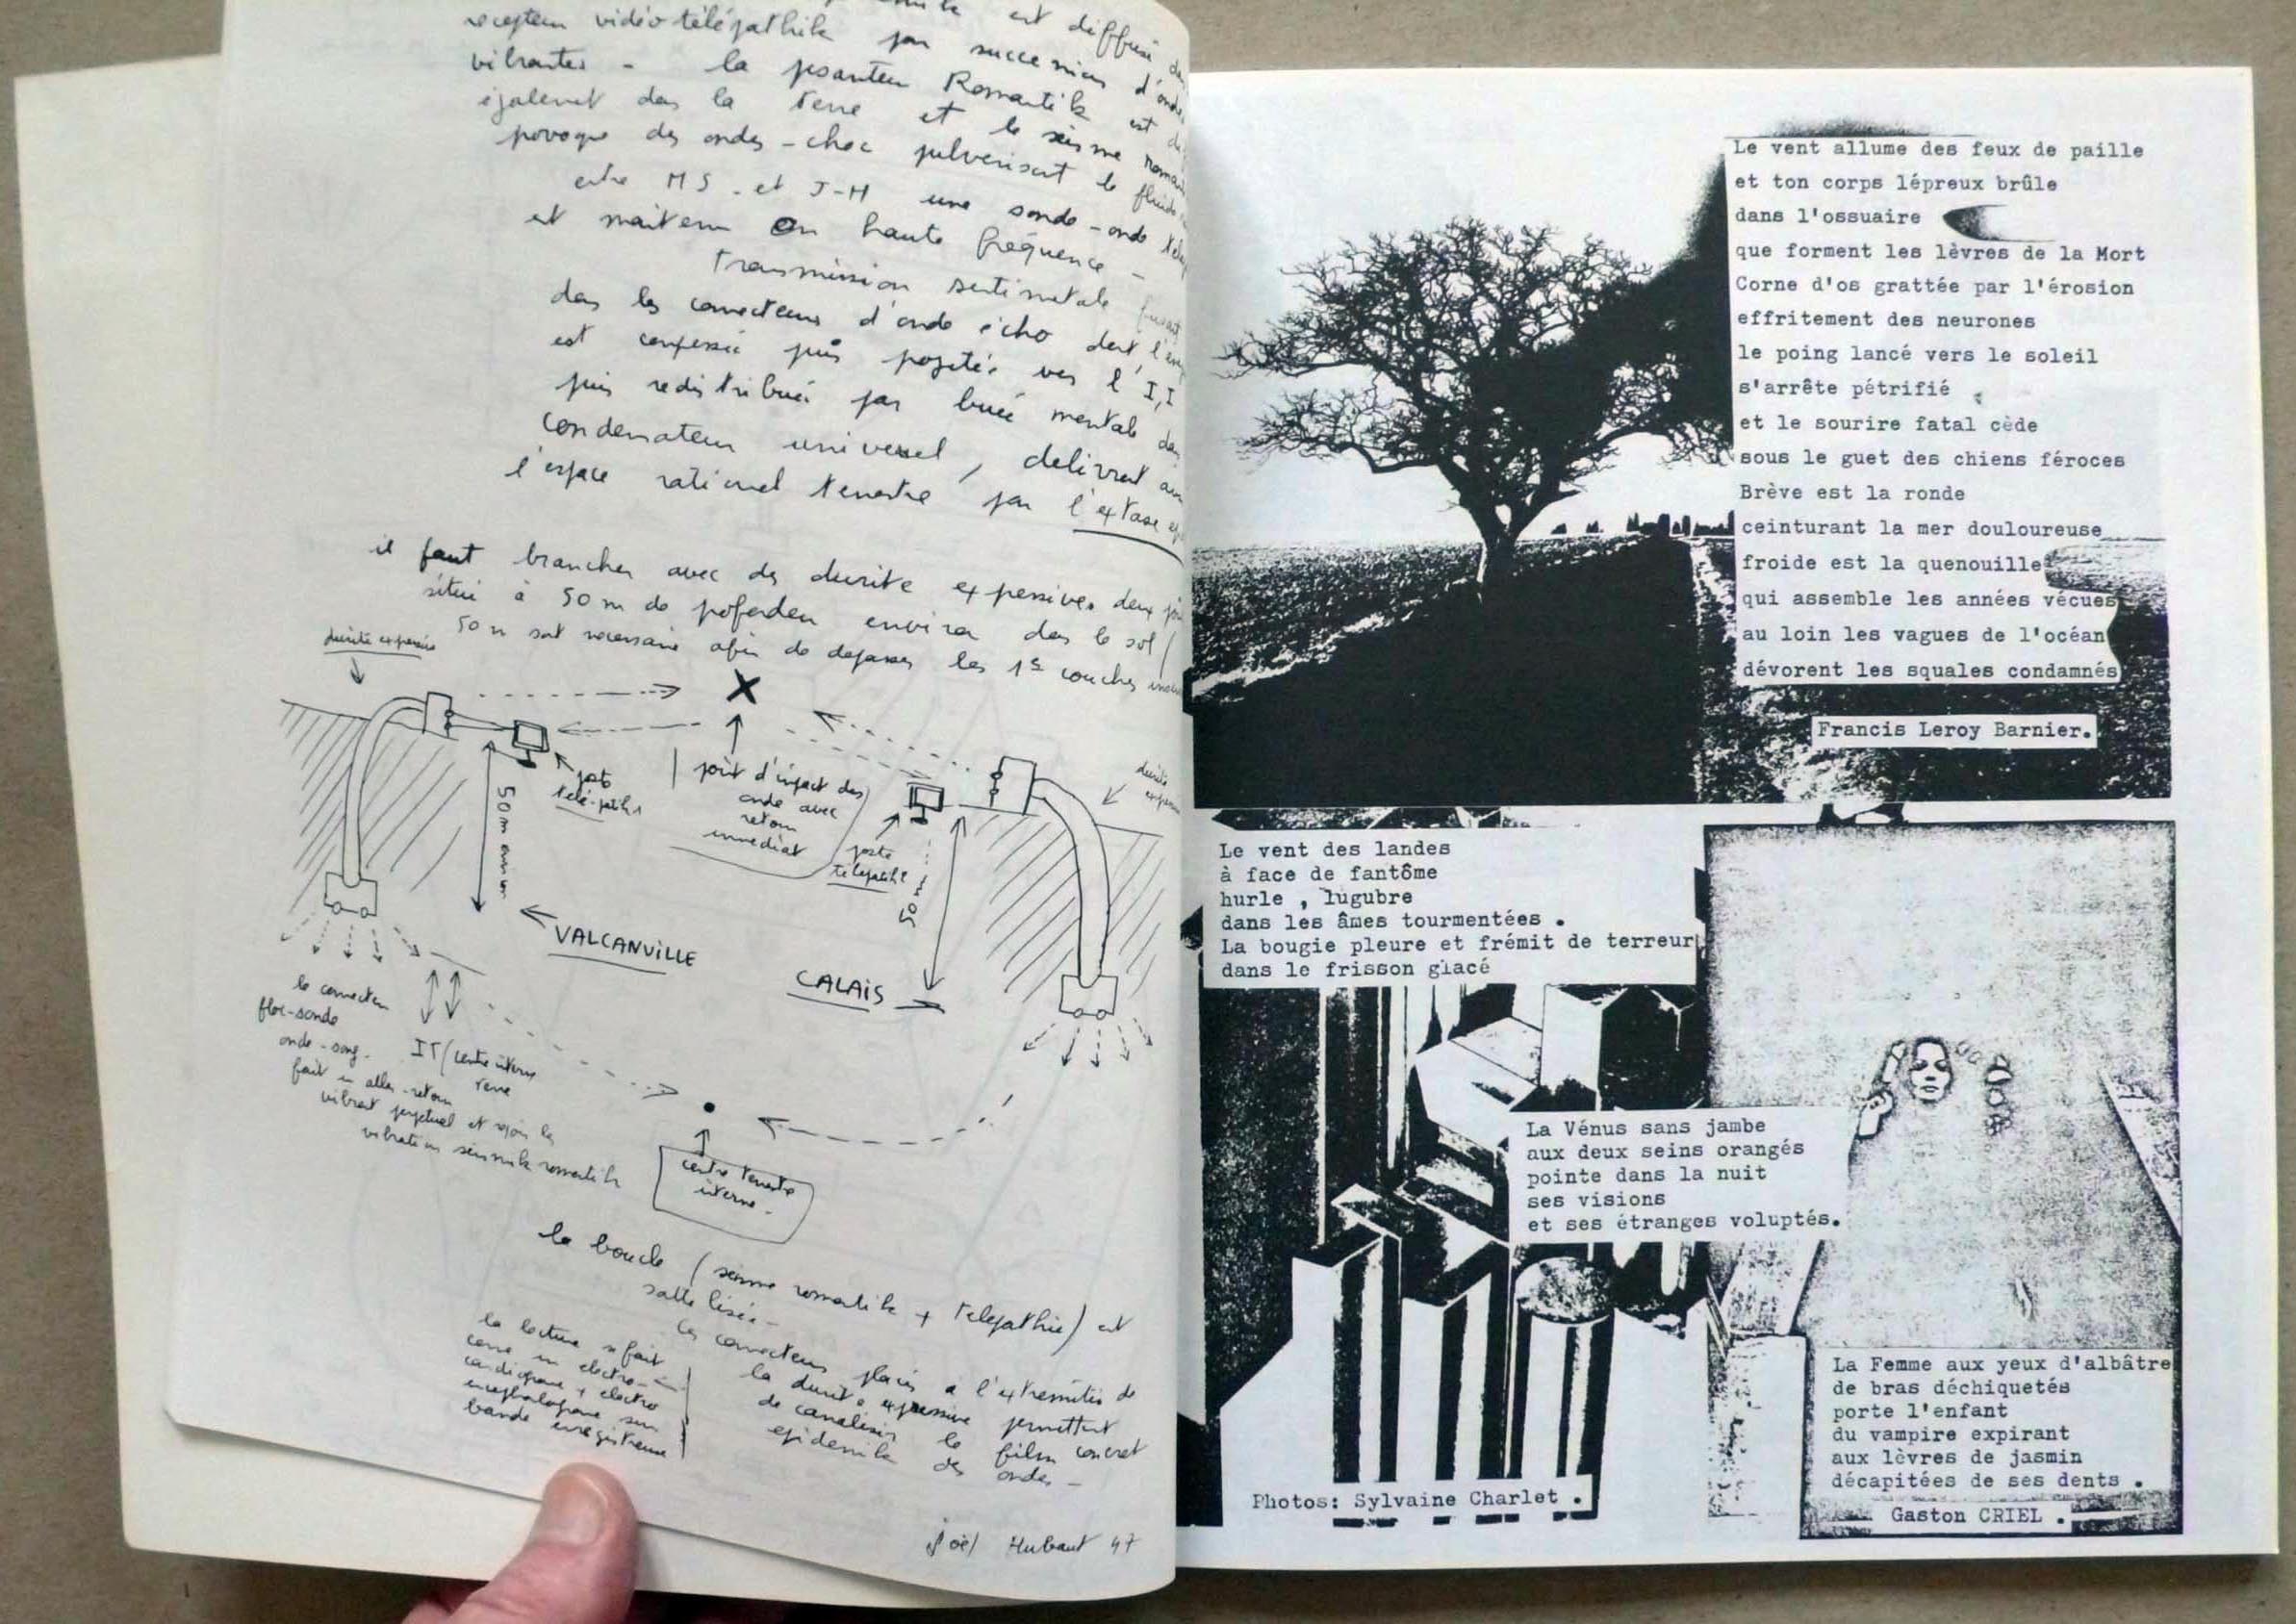 est diffusé
vidéo-télépathik par d'onde
vibrantes - la Romantik est
également dans la terre et le séisme
des ondes - choc pulvérisant le fluide
entre MS. et J-H une sonde - onde
et maitenu en haute fréquence -
Transmission sentimentale
dans les connecteurs d'onde écho dont
est puis vers l'I,I
puis redistribué par buée mentale
condensateur universel, delivrant
l'espace rationnel terrestre par l'extase
il faut brancher avec des durite expansives deux
situé à 50 m de environ dans le sol
50 m sont necessaire afin de depasser les 1es couches
durite
X
poste
télé-path
point d'impact des
onde avec
retour
immediat
poste
50 m environ
50 m
VALCANVILLE
CALAIS
le connecteur
floc-sonde
onde-song-
fait un aller-retour
vibrant perpetuel et
vibration séismik romantik
IT/centre interne
terre
centre terrestre
interne -
la boucle (séisme romantik + telepathie) est
satellisée -
les connecteurs placés a l'extremités de
la durite expressive permettent
de canaliser le film concret
epidemik des ondes -
la lecture se fait
comme un electro-
cardiogramme + electro
encephalogramme sur
bande enregistreuse
Joël Hubaut 47
Le vent allume des feux de paille
et ton corps lépreux brûle
dans l'ossuaire
que forment les lèvres de la Mort
Corne d'os grattée par l'érosion
effritement des neurones
le poing lancé vers le soleil
s'arrête pétrifié
et le sourire fatal cède
sous le guet des chiens féroces
Brève est la ronde
ceinturant la mer douloureuse
froide est la quenouille
qui assemble les années vécues
au loin les vagues de l'océan
dévorent les squales condamnés
Francis Leroy Barnier.
Le vent des landes
à face de fantôme
hurle , lugubre
dans les âmes tourmentées .
La bougie pleure et frémit de terreur
dans le frisson glacé
La Vénus sans jambe
aux deux seins orangés
pointe dans la nuit
ses visions
et ses étranges voluptés.
La Femme aux yeux d'albâtre
de bras déchiquetés
porte l'enfant
du vampire expirant
aux lèvres de jasmin
décapitées de ses dents .
Gaston CRIEL .
Photos: Sylvaine Charlet .